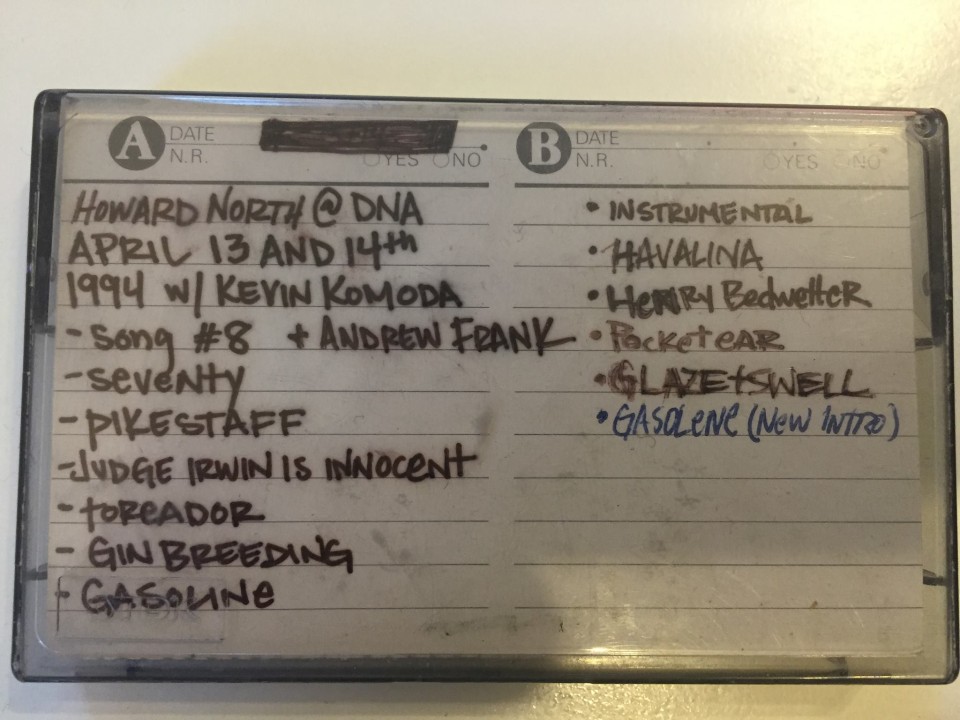 A DATE
N.R. YES NO
HOWARD NORTH @ DNA
APRIL 13 AND 14th
1994 W/ KEVIN KOMODA
- Song #8 + ANDREW FRANK
- seventy
- PIKESTAFF
- JUDGE IRWIN IS INNOCENT
- toreador
- GIN BREEDING
- GASOLINE
B DATE
N.R. YES NO
• INSTRUMENTAL
• HAVALINA
• HENRY Bedwetter
• Pocket EAR
• GLAZE + SWELL
• GASOLENE (New INTRO)